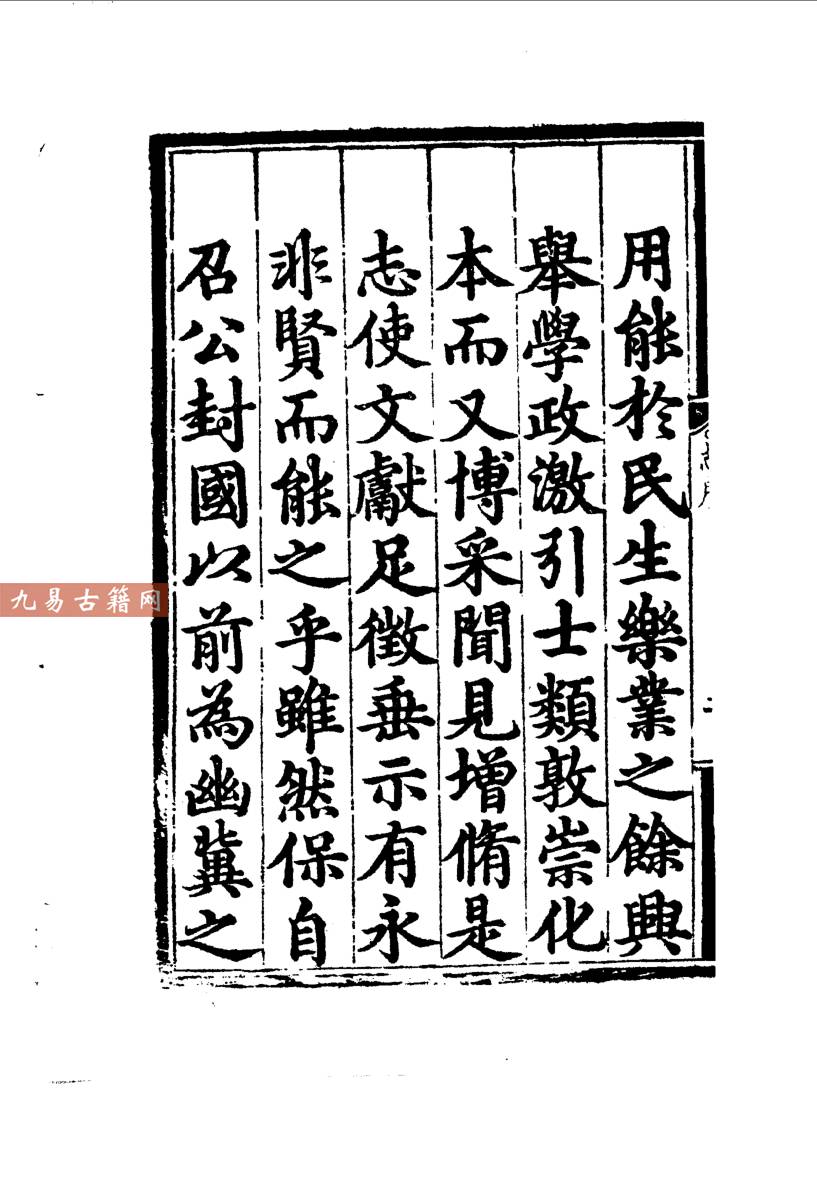 用能於民生樂業之餘興
舉學政激引士類敦崇化
本而又博采聞見增脩是
志使文獻足徵垂示有永
非賢而能之乎雖然保自
召公封國以前為幽冀之
二
九易古籍网